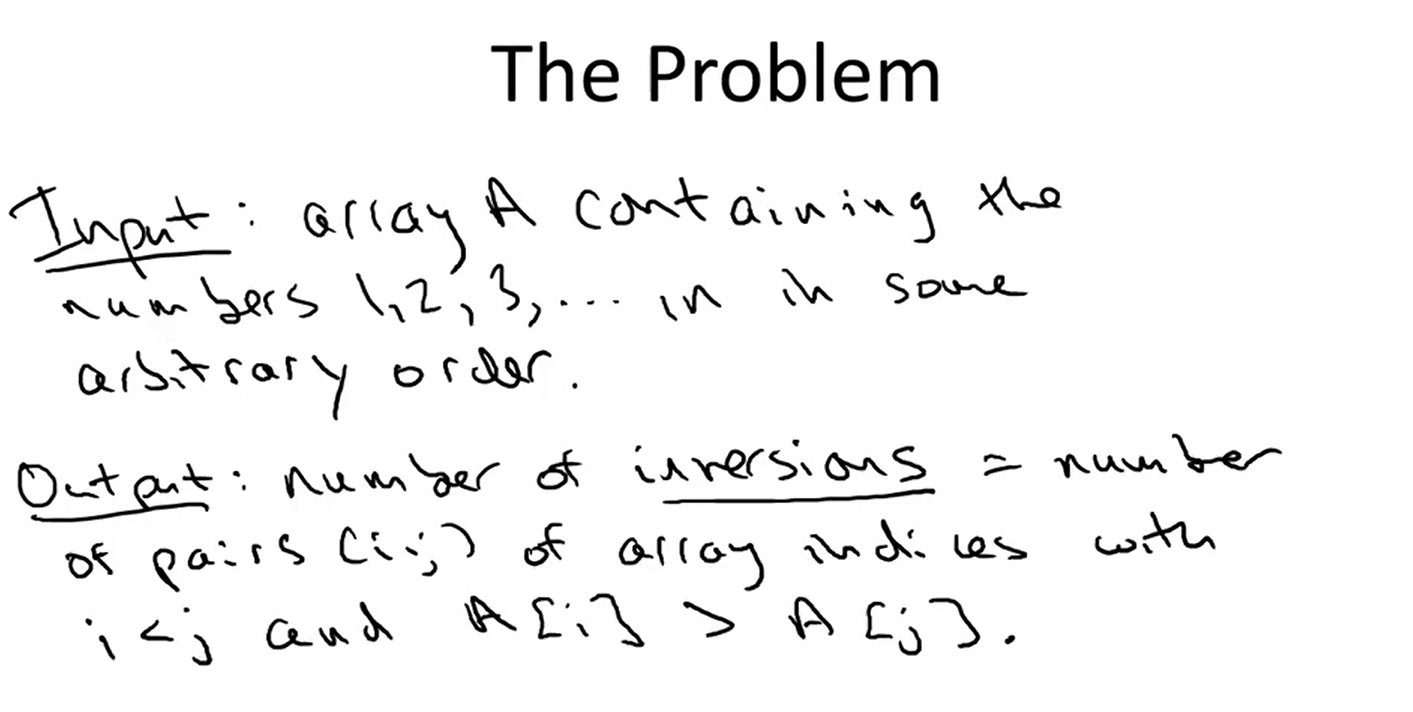 The Problem
Input: array A containing the
numbers 1,2,3,... in in some
arbitrary order.
Output: number of inversions = number
of pairs (i,j) of array indices with
i<j and A[i] > A[j].